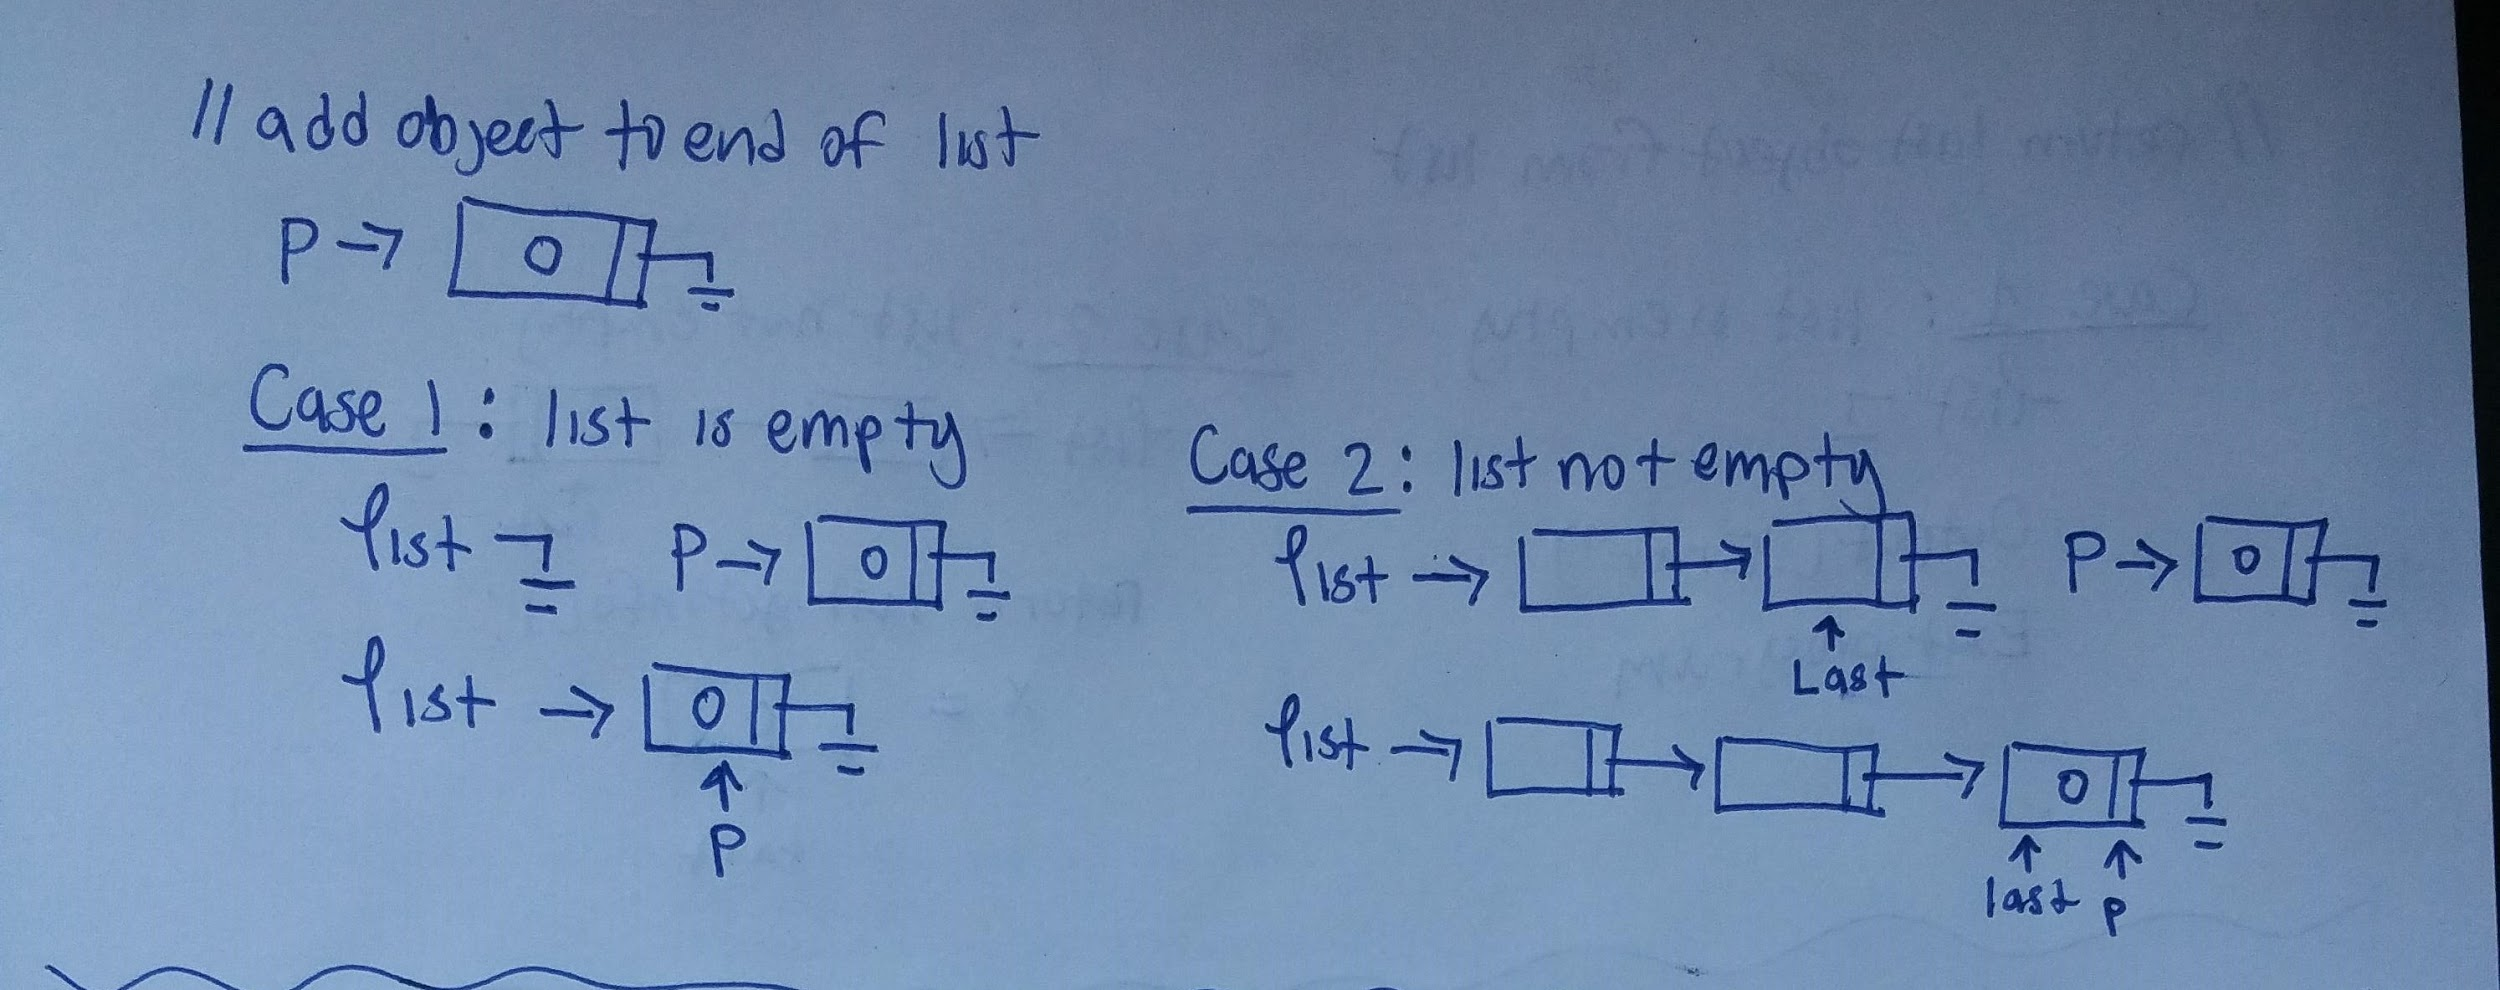 // add object to end of list
P → O
Case 1: list is empty
list P → O
list → O
P
Case 2: list not empty
list → P → O
Last
list → O
last P